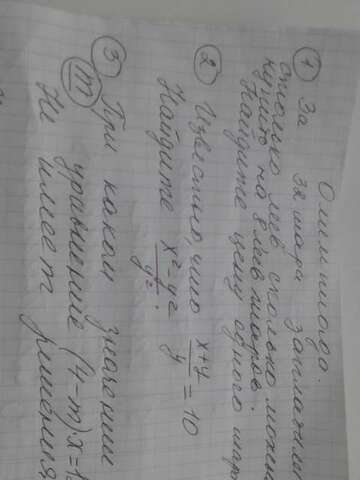 Олимпиада.
① За 32 шара заплатили
столько леев сколько можно
купить на 8 леев шаров.
Найдите цену одного шара
② Известно, что x+y/y = 10
Найдите x²-y²/y².
③ При каком значении
ⓜ уравнение (4-m)x=1
Не имеет решения,